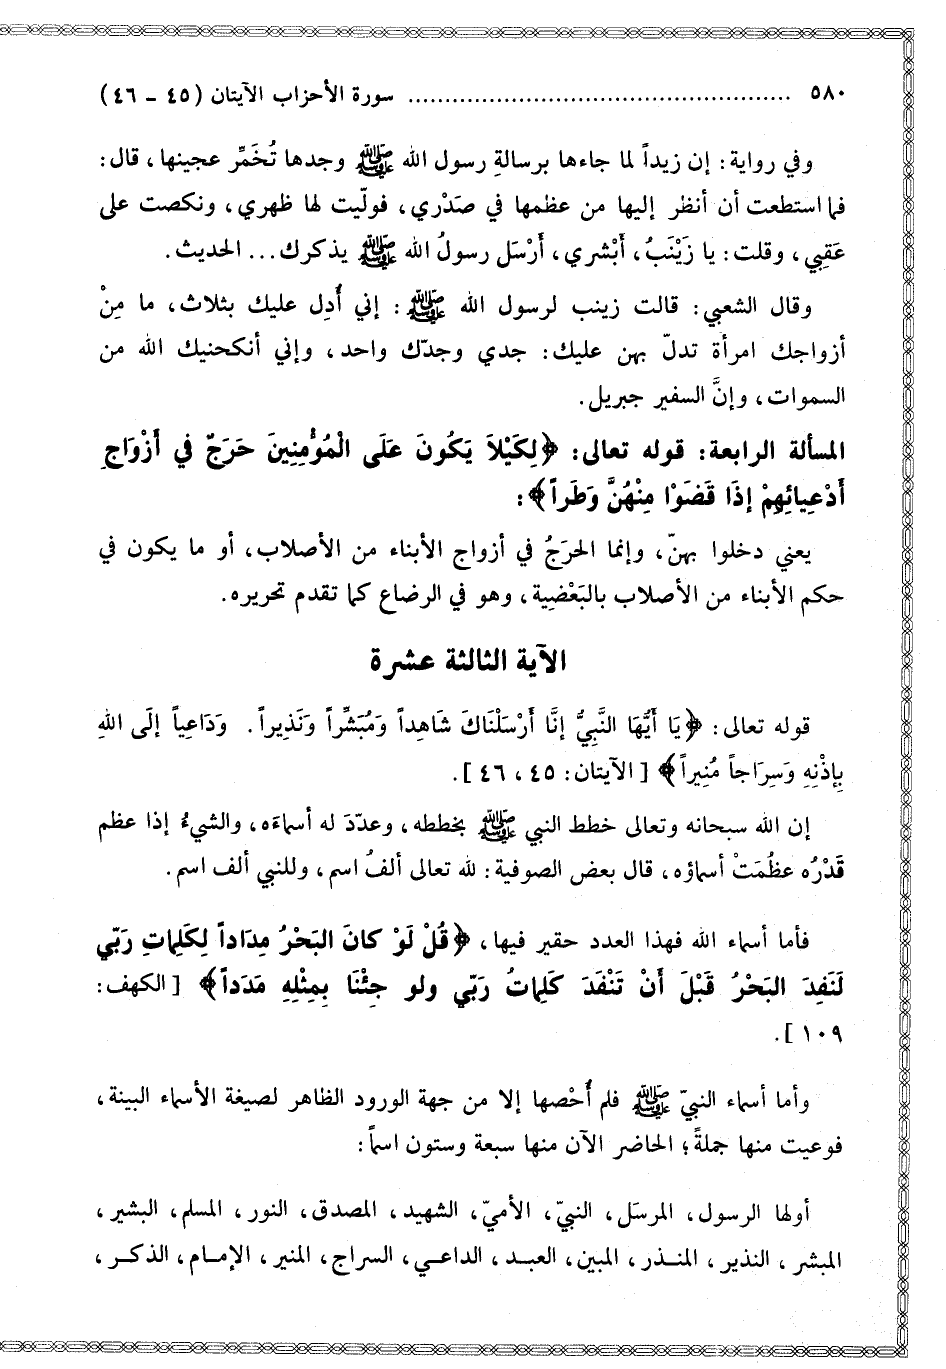 ٥٨٠ ..................................................... سورة الأحزاب الآيتان (٤٥ - ٤٦)
وفي رواية: إن زيداً لما جاءها برسالةِ رسول الله ﷺ وجدها تُخَمِّر عجينها، قال:
فما استطعت أن أنظر إليها من عظمها في صَدْري، فولّيت لها ظهري، ونكصت على
عَقِبي، وقلت: يا زَيْنَبُ، أَبْشري، أَرْسَل رسولُ الله ﷺ يذكرك... الحديث.
وقال الشعبي: قالت زينب لرسول الله ﷺ: إني أُدِل عليك بثلاث، ما مِنْ
أزواجك امرأة تدلّ بهن عليك: جدي وجدّك واحد، وإني أنكحنيك الله من
السموات، وإنَّ السفير جبريل.
المسألة الرابعة: قوله تعالى: ﴿لِكَيْلاَ يَكُونَ عَلَى الْمُؤْمِنِينَ حَرَجٌ في أَزْوَاجِ
أَدْعِيائِهِمْ إذَا قَضَوْا مِنْهُنَّ وَطَراً﴾:
يعني دخلوا بهنّ، وإنما الحَرَجُ في أزواج الأبناء من الأصلاب، أو ما يكون في
حكم الأبناء من الأصلاب بالبَعْضِية، وهو في الرضاع كما تقدم تحريره.
الآية الثالثة عشرة
قوله تعالى: ﴿يَا أَيُّهَا النَّبِيُّ إنَّا أَرْسَلْنَاكَ شَاهِداً وَمُبَشِّراً وَنَذِيراً. وَدَاعِياً إلَى اللهِ
بِإذْنِهِ وَسِرَاجاً مُنِيراً﴾ [الآيتان: ٤٥، ٤٦].
إن الله سبحانه وتعالى خطط النبي ﷺ بخططه، وعدّدَ له أسماءَه، والشيءُ إذا عظم
قَدْرُه عظُمَتْ أسماؤه، قال بعض الصوفية: لله تعالى ألفُ اسم، وللنبي ألف اسم.
فأما أسماء الله فهذا العدد حقير فيها، ﴿قُلْ لَوْ كانَ البَحْرُ مِدَاداً لِكَلِماتِ رَبِّي
لَنَفِدَ البَحْرُ قَبْلَ أَنْ تَنْفَدَ كَلِماتُ رَبِّي ولو جِئْنَا بِمِثْلِهِ مَدَداً﴾ [الكهف:
١٠٩].
وأما أسماء النبيّ ﷺ فلم أُحْصها إلا من جهة الورود الظاهر لصيغة الأسماء البينة،
فوعيت منها جملةً؛ الحاضر الآن منها سبعة وستون اسماً:
أولها الرسول، المرسَل، النبيّ، الأميّ، الشهيد، المصدق، النور، المسلم، البشير،
المبشر، النذير، المنذر، المبين، العبد، الداعي، السراج، المنير، الإمام، الذكر،